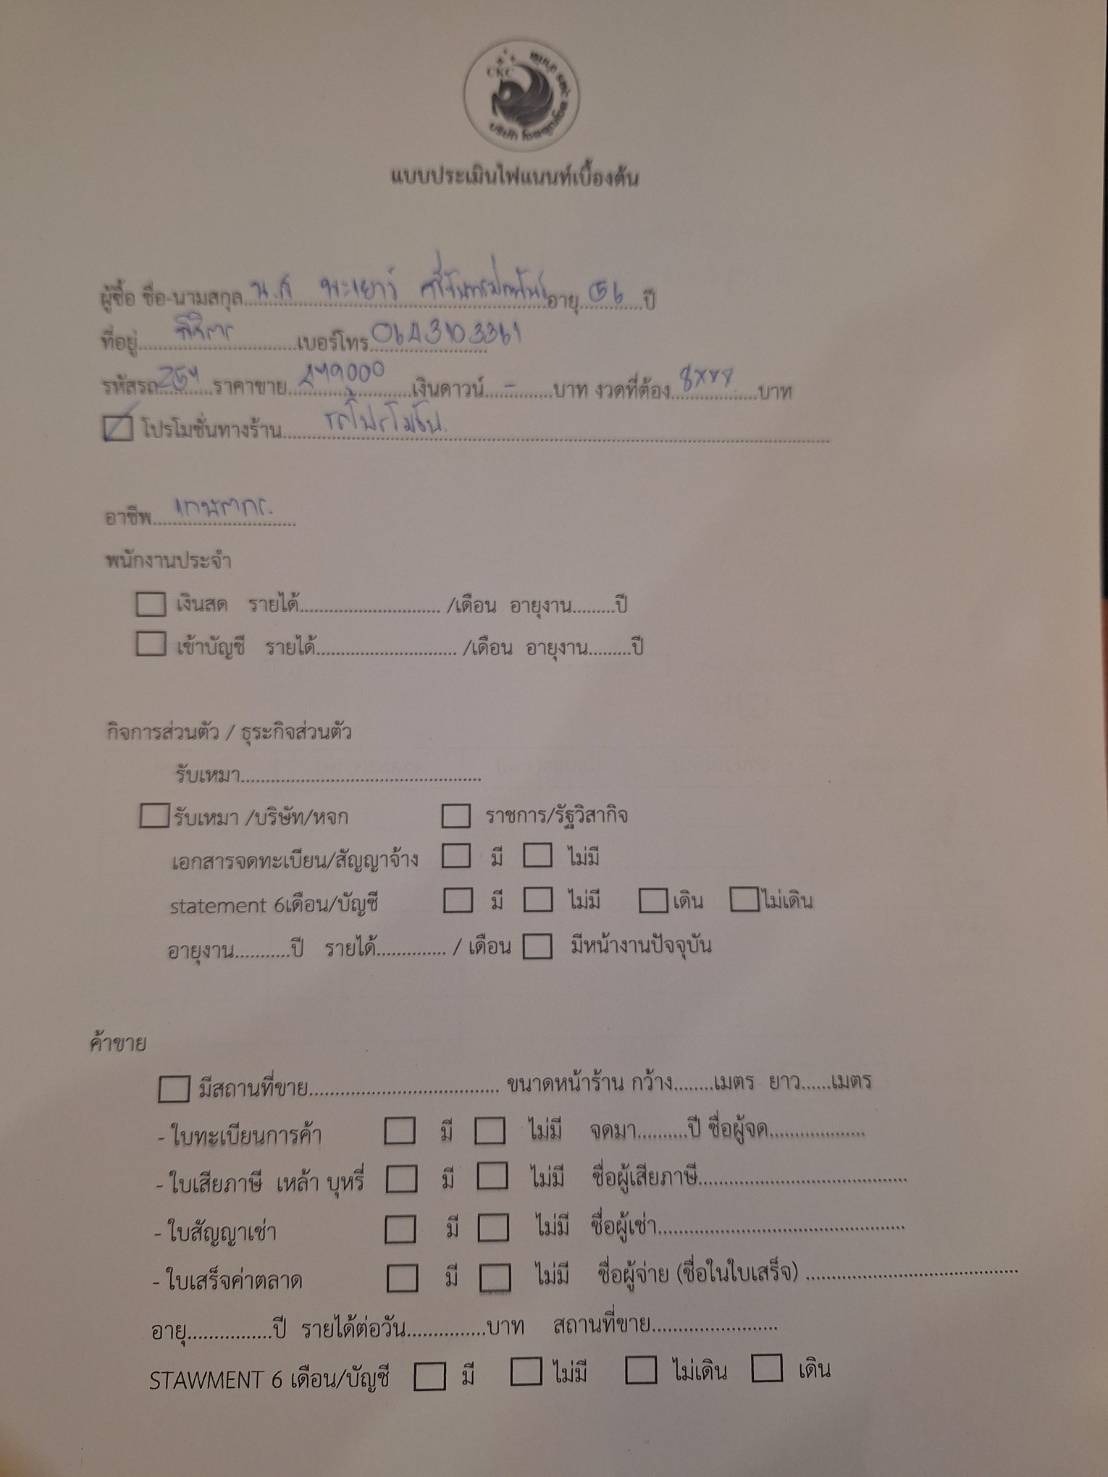 CKC
แบบประเมินไฟแนนท์เบื้องต้น
ผู้ซื้อ ชื่อ-นามสกุล น.ส พะเยาว์ อายุ 56 ปี
ที่อยู่ พิจิตร เบอร์โทร 0643103361
รหัสรถ ราคาขาย 449000 เงินดาวน์ - บาท งวดที่ต้อง 8xxx บาท
โปรโมชั่นทางร้าน รถโปรโมชั่น
อาชีพ เกษตกร
พนักงานประจำ
เงินสด รายได้ /เดือน อายุงาน ปี
เข้าบัญชี รายได้ /เดือน อายุงาน ปี
กิจการส่วนตัว / ธุระกิจส่วนตัว
รับเหมา
รับเหมา /บริษัท/หจก ราชการ/รัฐวิสากิจ
เอกสารจดทะเบียน/สัญญาจ้าง มี ไม่มี
statement 6เดือน/บัญชี มี ไม่มี เดิน ไม่เดิน
อายุงาน ปี รายได้ / เดือน มีหน้างานปัจจุบัน
ค้าขาย
มีสถานที่ขาย ขนาดหน้าร้าน กว้าง เมตร ยาว เมตร
- ใบทะเบียนการค้า มี ไม่มี จดมา ปี ชื่อผู้จด
- ใบเสียภาษี เหล้า บุหรี่ มี ไม่มี ชื่อผู้เสียภาษี
- ใบสัญญาเช่า มี ไม่มี ชื่อผู้เช่า
- ใบเสร็จค่าตลาด มี ไม่มี ชื่อผู้จ่าย (ชื่อในใบเสร็จ)
อายุ ปี รายได้ต่อวัน บาท สถานที่ขาย
STAWMENT 6 เดือน/บัญชี มี ไม่มี ไม่เดิน เดิน